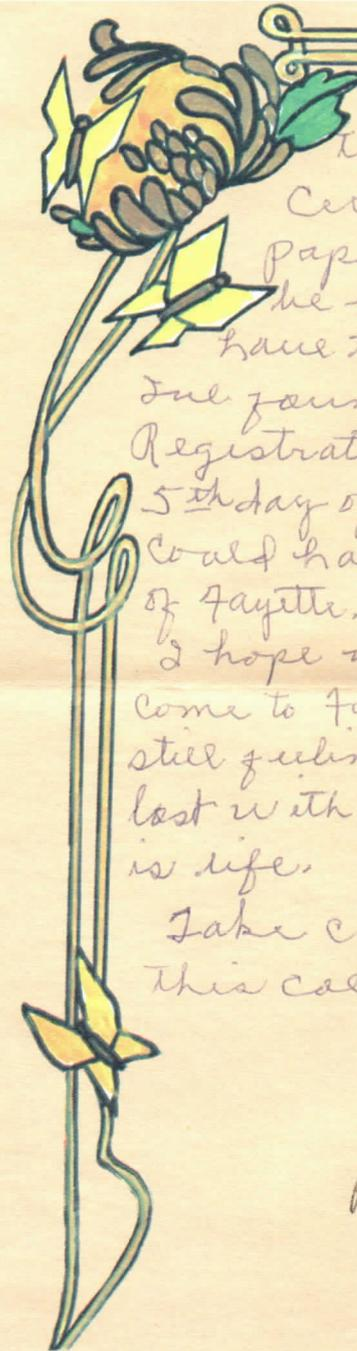 t
Cer
pape
be
have
Registrat
5th day o
Could ha
of Fayette.
I hope
come to Fa
still feelin
lost with
is life.
Take c
this col